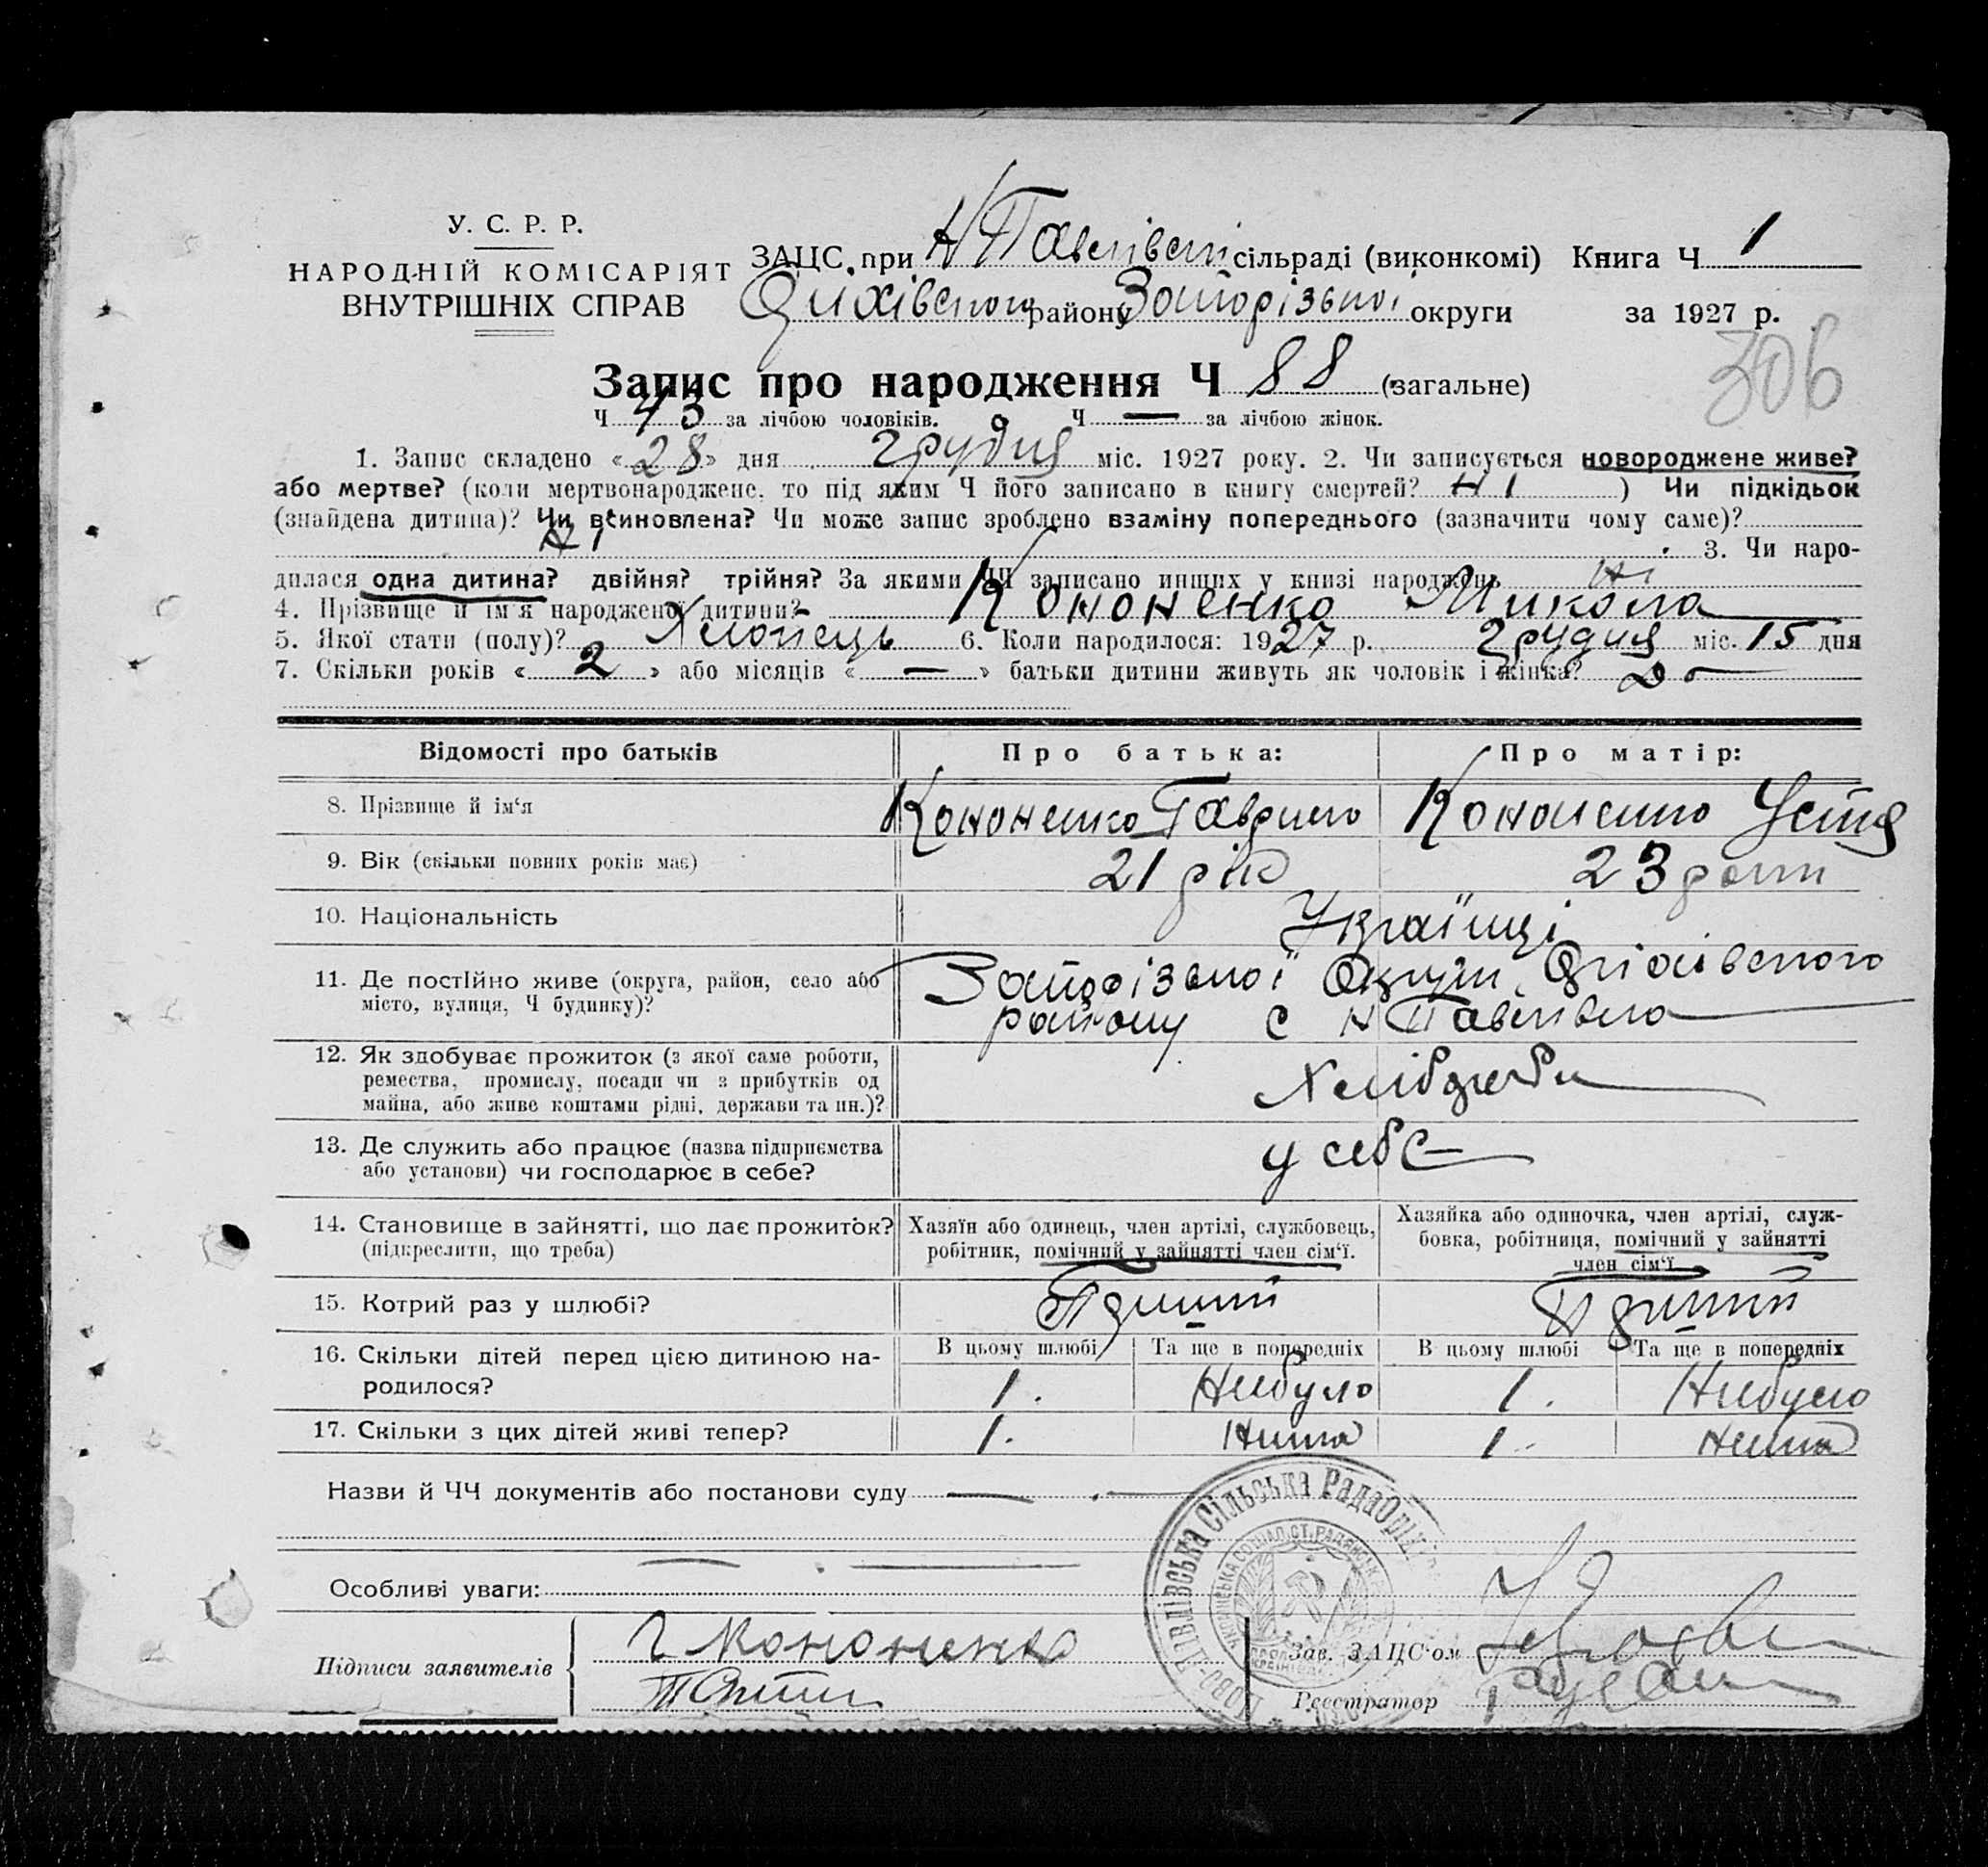 У. С. Р. Р.
НАРОДНІЙ КОМІСАРІЯТ
ВНУТРІШНІХ СПРАВ
ЗАЦС при Н Павлівскі сільраді (виконкомі) Книга Ч 1
Оріхівського району Запорізької округи за 1927 р.
306
Запис про народження Ч 88 (загальне)
Ч 43 за лічбою чоловіків. Ч — за лічбою жінок.
1. Запис складено «28» дня грудня міс. 1927 року. 2. Чи записується новороджене живе?
або мертве? (коли мертвонароджене, то під яким Ч його записано в книгу смертей? Ні ) Чи підкідьок
(знайдена дитина)? Чи всиновлена? Чи може запис зроблено взаміну попереднього (зазначити чому саме)?
Ні
3. Чи наро-
дилася одна дитина? двійня? трійня? За якими ЧЧ записано инших у книзі народжень Ні
4. Прізвище й ім'я народженої дитини? Кононенко Микола
5. Якої стати (полу)? Хлопець 6. Коли народилося: 1927 р. грудня міс. 15 дня
7. Скільки років «2» або місяців «—» батьки дитини живуть як чоловік і жінка?
Відомості про батьків Про батька: Про матір:
8. Прізвище й ім'я Кононенко Гаврило Кононенко Устя
9. Вік (скільки повних років має) 21 рік 23 роки
10. Національність Українці
11. Де постійно живе (округа, район, село або
місто, вулиця, Ч будинку)?
Запорізької Округи Оріхівського
району с Н Павлівка
12. Як здобуває прожиток (з якої саме роботи,
ремества, промислу, посади чи з прибутків од
майна, або живе коштами рідні, держави та ин.)?
Хлібороби
13. Де служить або працює (назва підприємства
або установи) чи господарює в себе?
у себе
14. Становище в зайнятті, що дає прожиток?
(підкреслити, що треба)
Хазяїн або одинець, член артілі, службовець,
робітник, помічний у зайнятті член сім'ї.
Хазяйка або одиночка, член артілі, служ-
бовка, робітниця, помічний у зайнятті
член сім'ї
15. Котрий раз у шлюбі? Перший Перший
16. Скільки дітей перед цією дитиною на-
родилося?
В цьому шлюбі Та ще в попередніх В цьому шлюбі Та ще в попередніх
1. Небуло 1. Небуло
17. Скільки з цих дітей живі тепер? 1. Нема 1. Нема
Назви й ЧЧ документів або постанови суду
Особливі уваги:
Підписи заявителів
Г Кононенко
Зав. ЗАЦС'ом
Реєстратор
Ново-Павлівська Сільська Рада